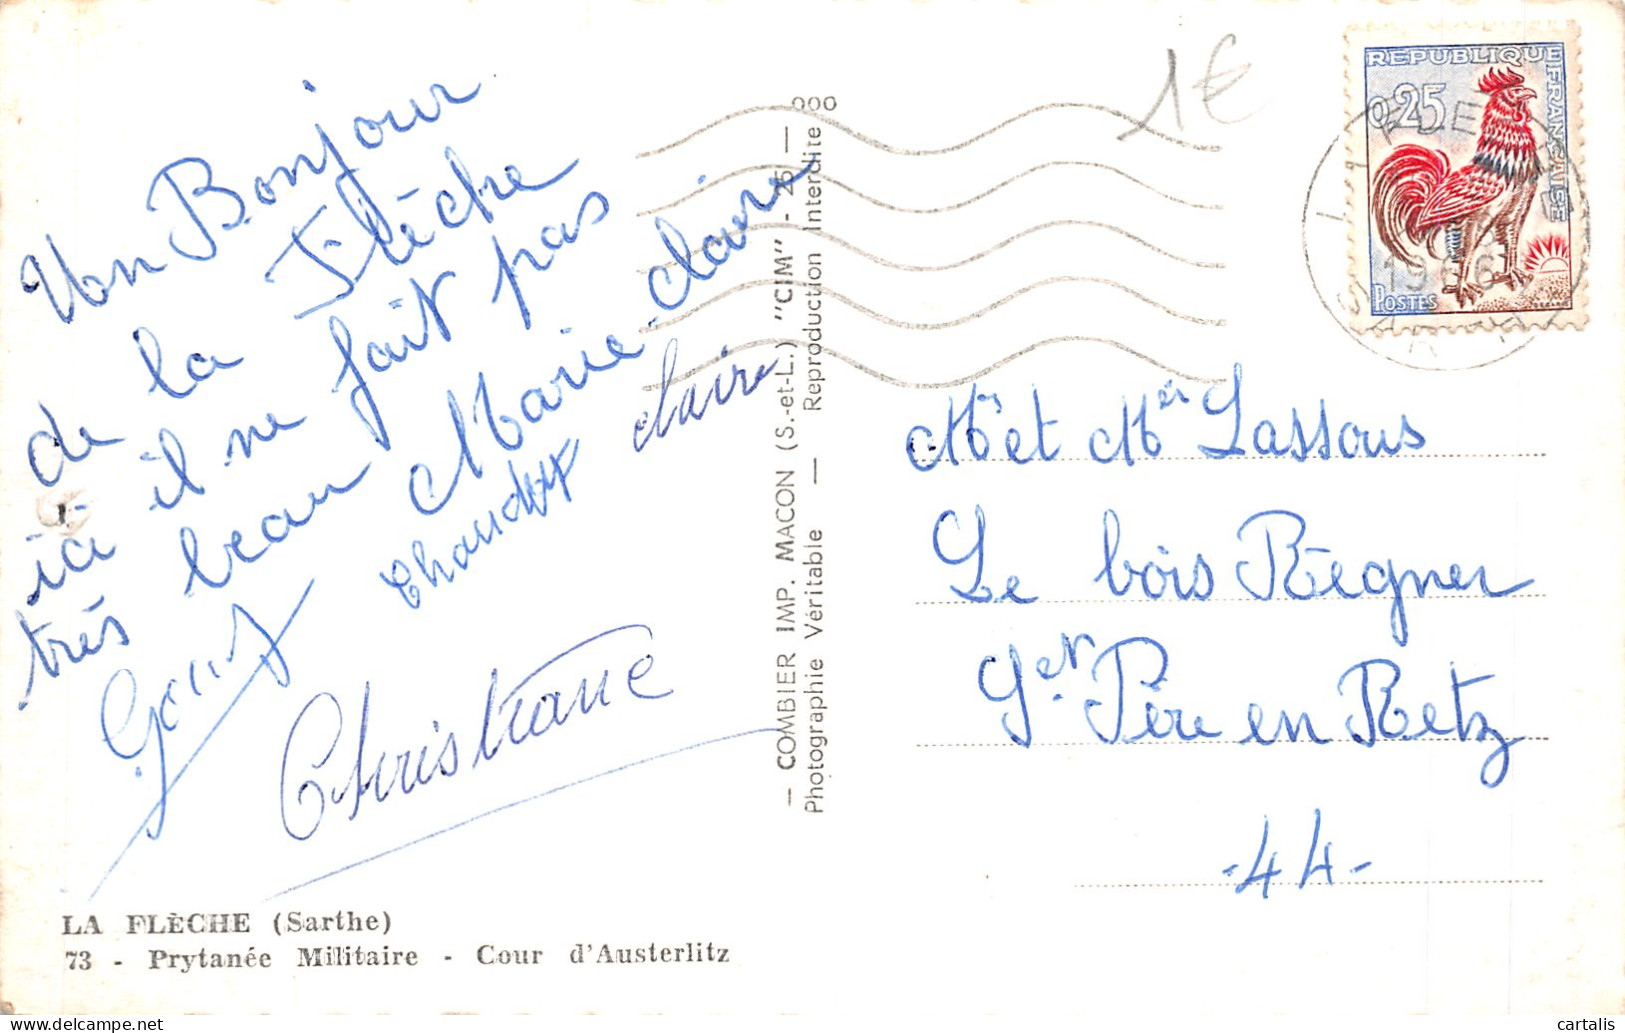 Un Bonjour
de la Flèche
ici il ne fait pas
très beau Marie-claire
claire
Christiane
LA FLÈCHE (Sarthe)
73 - Prytanée Militaire - Cour d'Austerlitz
— COMBIER IMP. MACON (S.-et-L.) "CIM" - 25 — 000
Photographie Véritable — Reproduction Interdite
1€
REPUBLIQUE FRANÇAISE
0,25
POSTES
LA FLECHE
SARTHE
Mr et Mer Lassous
Le bois Règner
St Père en Retz
-44-
cartalis